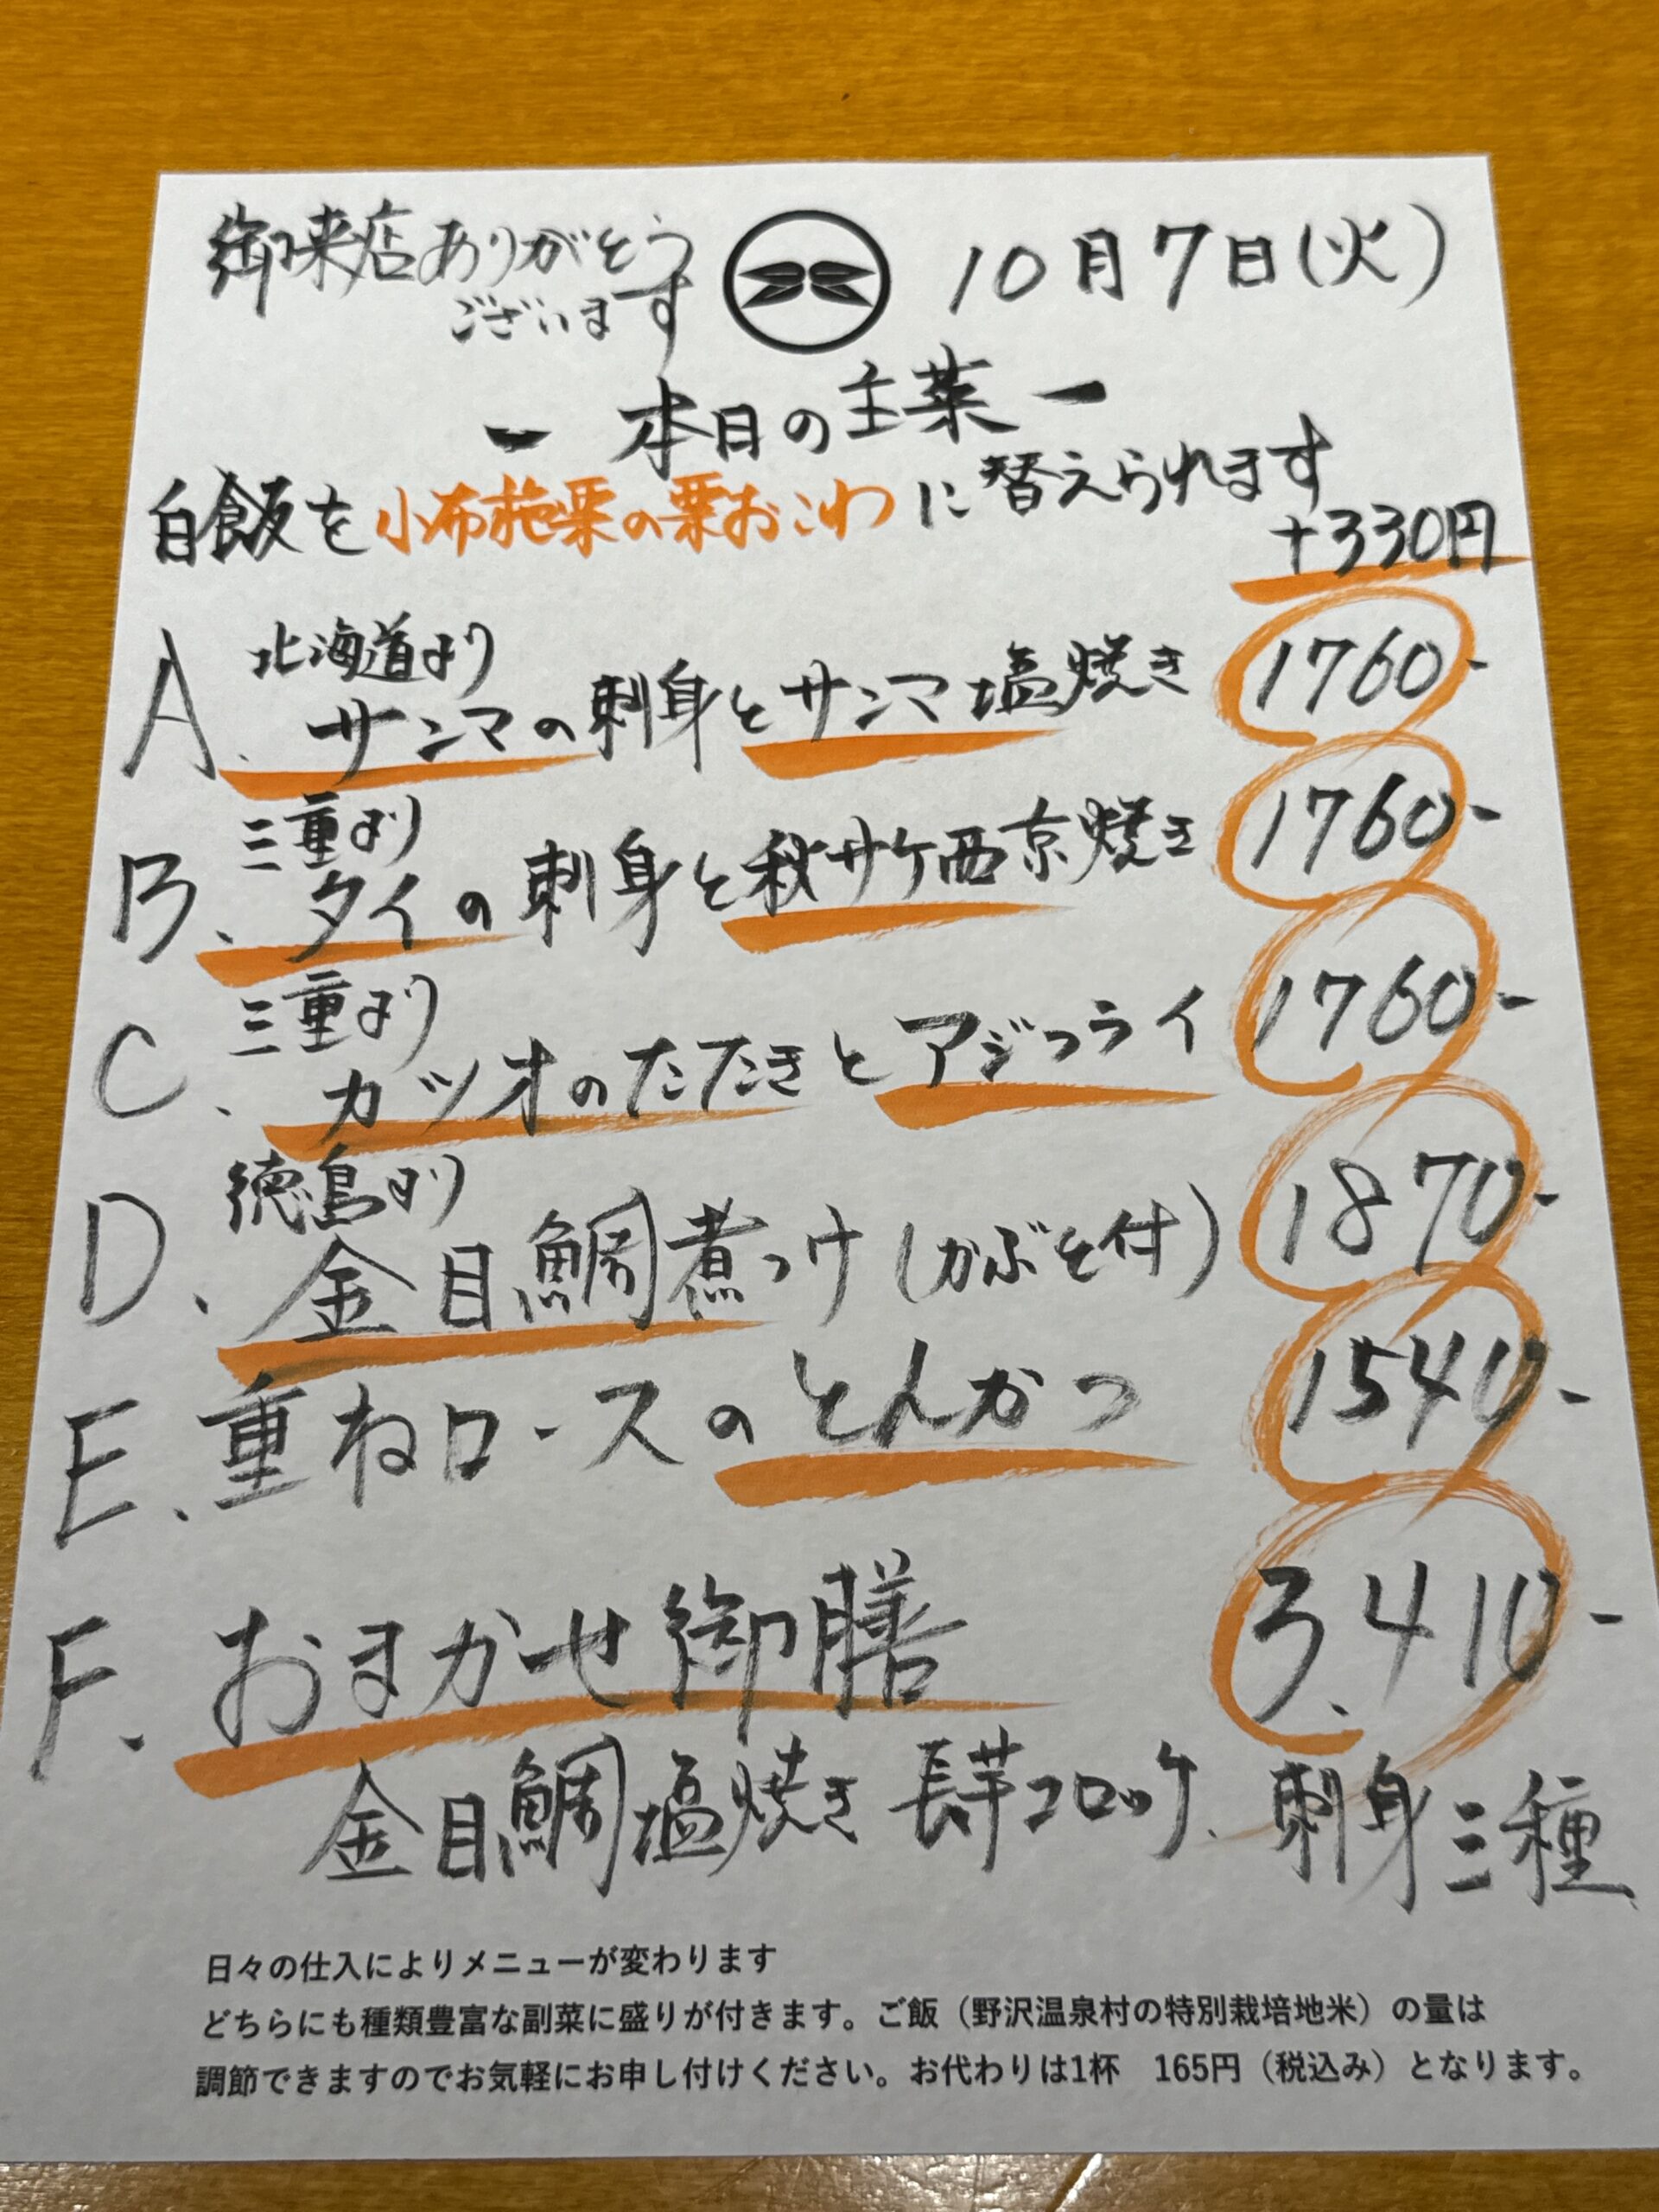 御来店ありがとう
ございます
10月7日(火)
- 本日の主菜 -
白飯を小布施栗の栗おこわに替えられます
+330円
北海道より
A. サンマの刺身とサンマ塩焼き 1760-
三重より
B. タイの刺身と秋サケ西京焼き 1760-
三重より
C. カツオのたたきとアジフライ 1760-
徳島より
D. 金目鯛煮つけ(かぶと付) 1870-
E. 重ねロースのとんかつ 1540-
F. おまかせ御膳 3,410-
金目鯛塩焼き 長芋コロッケ、刺身三種
日々の仕入によりメニューが変わります
どちらにも種類豊富な副菜に盛りが付きます。ご飯（野沢温泉村の特別栽培地米）の量は
調節できますのでお気軽にお申し付けください。お代わりは1杯　165円（税込み）となります。